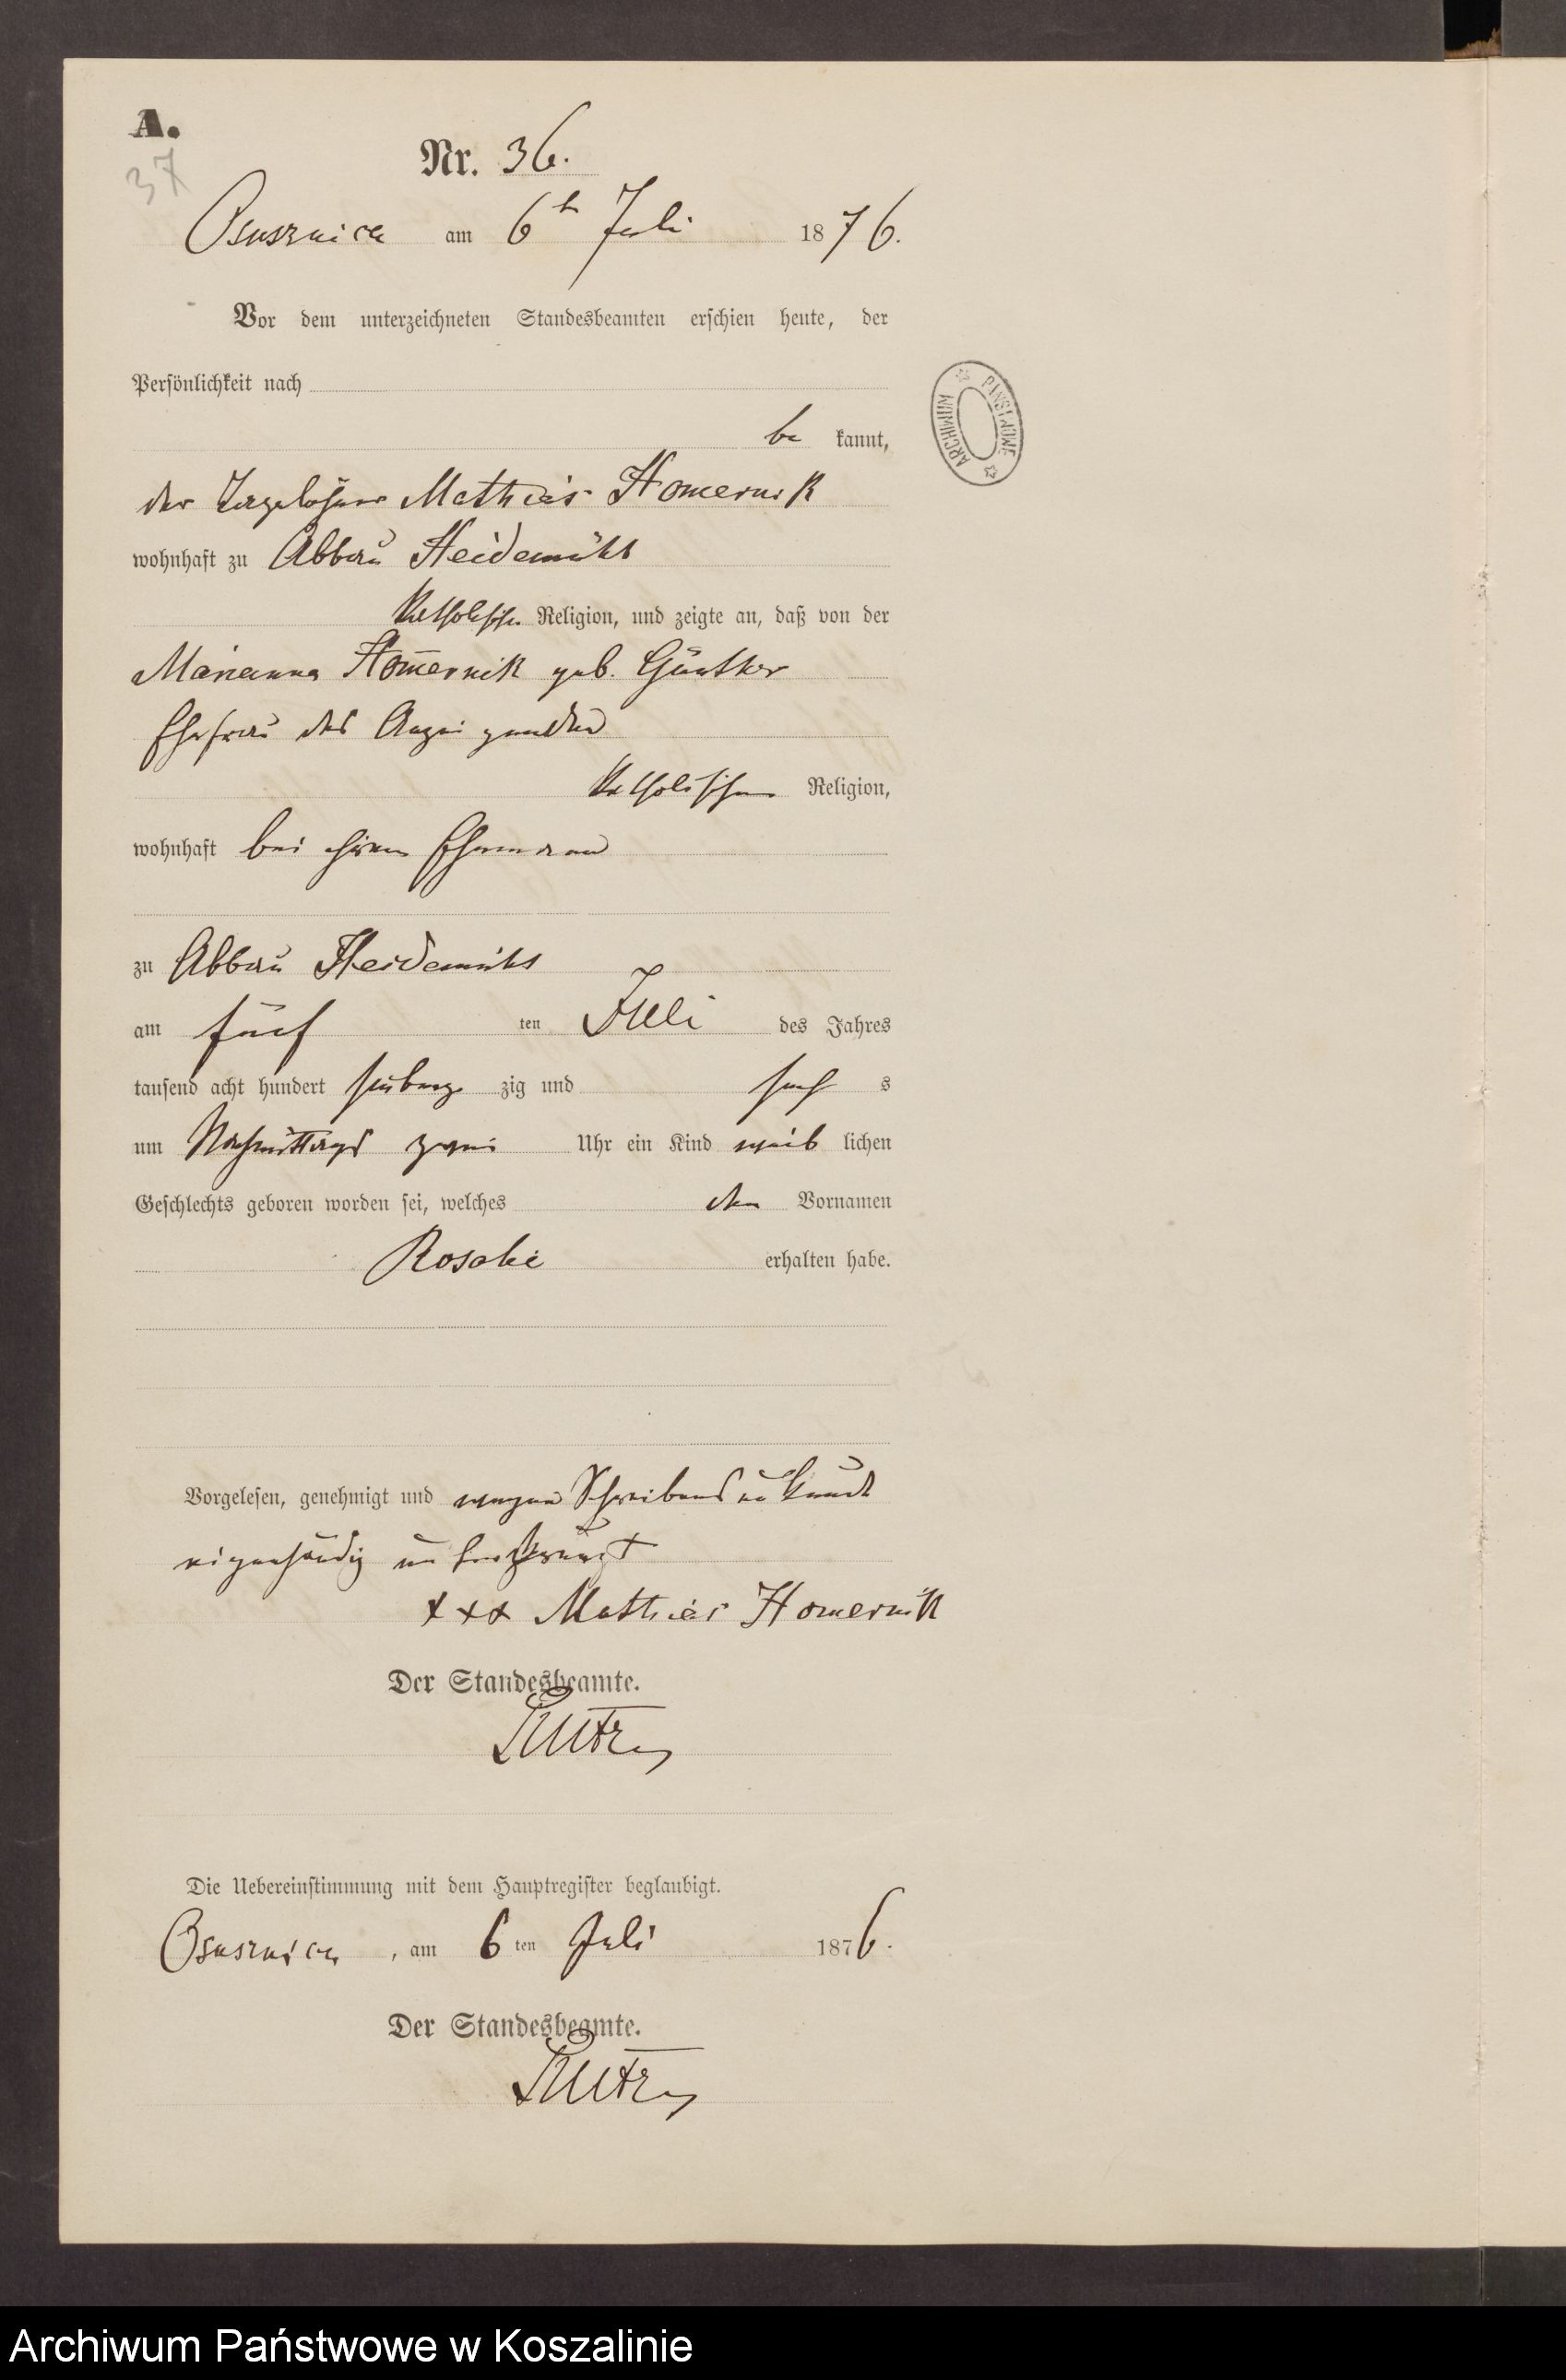 A.
37
Nr. 36.
Osusznica am 6t Juli 1876.
Vor dem unterzeichneten Standesbeamten erschien heute, der
Persönlichkeit nach
be kannt,
der Tagelöhner Mathias Homernik
wohnhaft zu Abbau Heidemühl
Katholischer Religion, und zeigte an, daß von der
Marianna Homernik geb. Günther
Ehefrau des Anzeigenden
Katholischen Religion,
wohnhaft bei ihrem Ehemann
zu Abbau Heidemühl
am fünf ten Juli des Jahres
tausend acht hundert siebenzig zig und sechs s
um Nachmittags zwei Uhr ein Kind weib lichen
Geschlechts geboren worden sei, welches den Vornamen
Rosalie erhalten habe.
Vorgelesen, genehmigt und wegen Schreibensunkunde
eigenhändig unterkreuzt
xxx Mathias Homernik
Der Standesbeamte.
Die Uebereinstimmung mit dem Hauptregister beglaubigt.
Osusznica, am 6 ten Juli 1876.
Der Standesbeamte.
ARCHIWUM PAŃSTWOWE
Archiwum Państwowe w Koszalinie